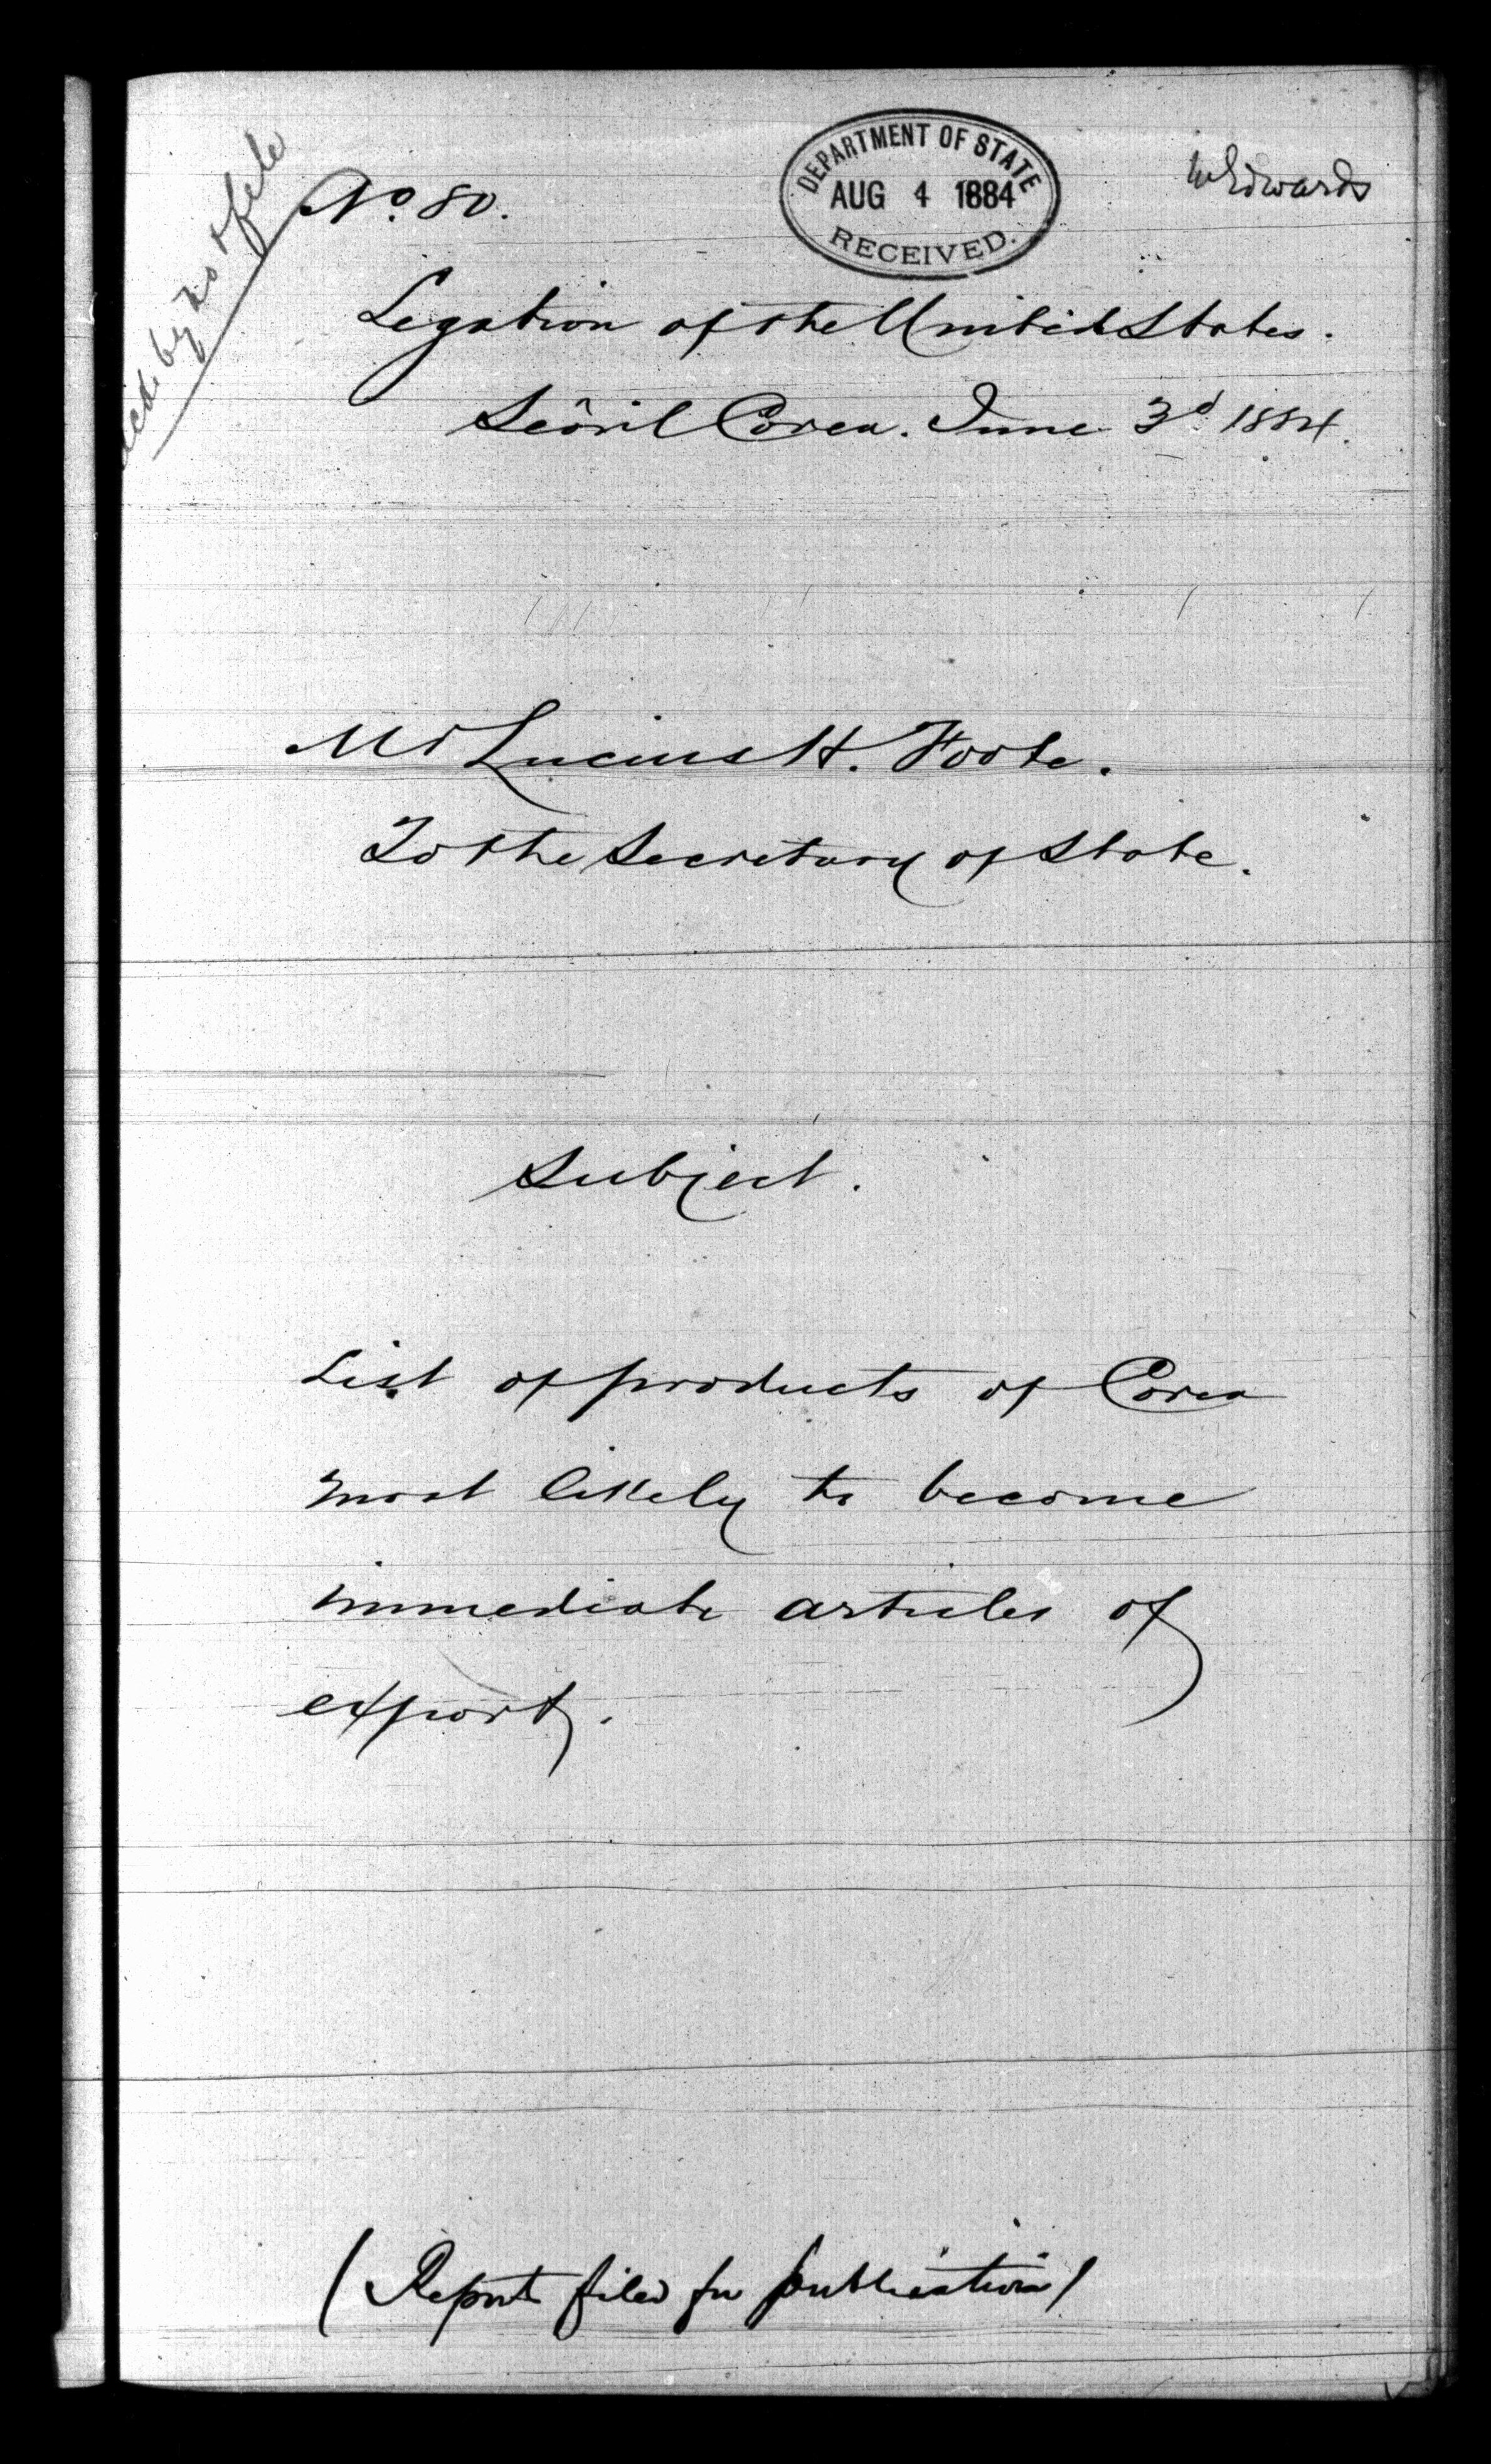 No. 80.
DEPARTMENT OF STATE
AUG 4 1884
RECEIVED.
Edwards
Legation of the United States.
Seôul Corea. June 3d 1884.
Mr Lucius H. Foote.
To the Secretary of State.
Subject.
List of products of Corea
most likely to become
immediate articles of
export.
(Report filed for publication)